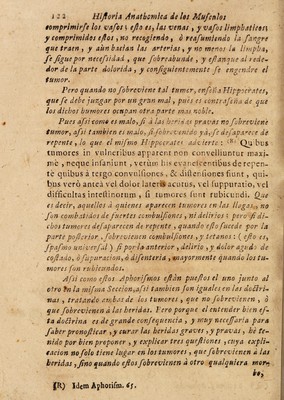 122 Historia Anathomica de los Musculos
comprimirse los vasos: esto es, las venas, y vasos limphaticos
y comprimidos estos, no recogiendo, ò reasumiendo la sangre
que traen, y aùn hacian las arterias, y no menos la limpha,
se sigue por necesidad, que sobreabunde, y estanque al rede-
dor de la parte dolorida, y consiguientemente se engendre el
tumor.
Pero quando no sobreviene tal tumor, enseña Hippocrates,
que se debe juzgar por un gran mal, pues es contraseña de que
los dichos humores ocupan otra parte mas noble.
Pues asi como es malo, si à las heridas presto no sobreviene
tumor, asi tambien es malo, si sobrevenido yà, se desaparece de
repente, lo que el mismo Hippocrates advierte: Quibus
tumores in vulneribus apparent non convelluntur maxi-
mè, neque insaniunt, verùm his evanescentibus de repen-
tè quibus à tergo convulsiones, & distensiones fiunt, qui-
bus verò antea vel dolor lateris acutus, vel suppuratio, vel
difficultas intestinorum, si tumores sunt rubicundi. Que
es decir, aquellos à quienes aparecen tumores en las llagas no
son combatidos de fuertes combulsiones, ni delirios; pero si di-
chos tumores desaparecen de repente, quando esto sucede por la
parte posterior, sobrevienen combulsiones, y tetanos: (esto es,
spasmo universal) si por la anterior, delirio, y dolor agudo de
costado, ò supuracion, ò disenteria, mayormente quando los tu-
mores son rubicundos.
Asi como estos Aphorismos estàn puestos el uno junto al
otro en la misma Seccion, asi tambien son iguales en las doctri-
nas, tratando ambos de los tumores, que no sobrevienen, ò
que sobrevienen à las heridas. Pero porque el entender bien es-
ta doctrina es de grande consequencia, y muy necessaria para
saber pronosticar, y curar las heridas graves, y pravas, he te-
nido por bien proponer, y explicar tres questiones, cuya expli-
cacion no solo tiene lugar en los tumores, que sobrevienen à las
heridas, sino quando estos sobrevienen à otro qualquiera mor-
bo,
(R) Idem Aphorism. 65.